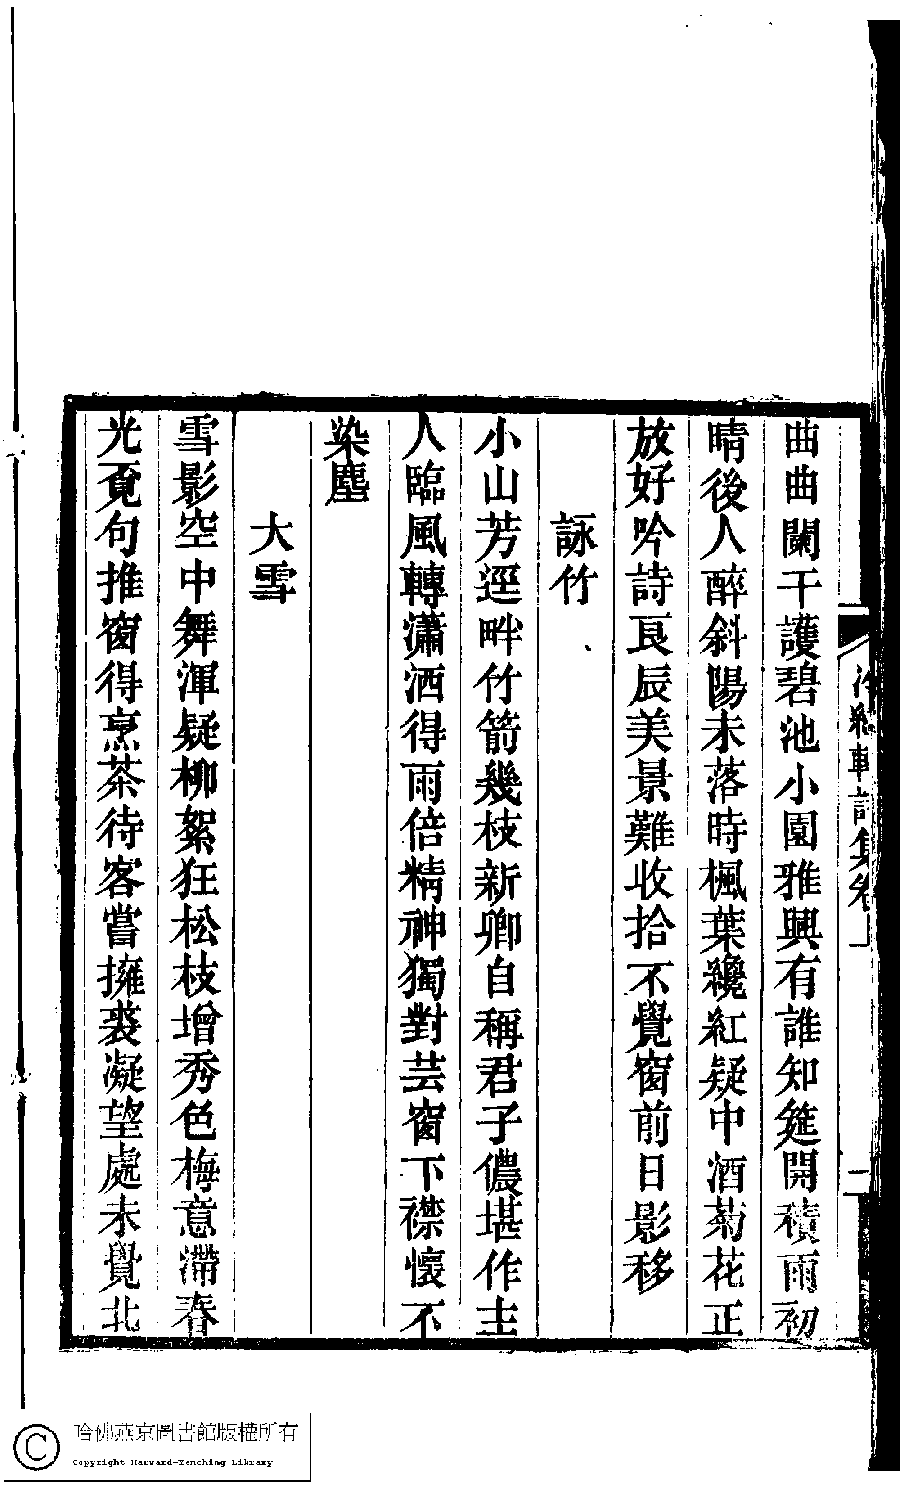 曲曲闌干護碧池小園雅興有誰知筵開積雨初
晴後人醉斜陽未落時楓葉纔紅疑中酒菊花正
放好吟詩良辰美景難收拾不覺窗前日影移
詠竹
小山芳逕畔竹箭幾枝新卿自稱君子儂堪作主
人臨風轉瀟洒得雨倍精神獨對芸窗下襟懷不
染塵
大雪
雪影空中舞渾疑柳絮狂松枝增秀色梅意滯春
光覓句推窗得烹茶待客嘗擁裘凝望處未覺北
軒詩集卷一
哈佛燕京圖書館版權所有
Copyright Harvard-Yenching Library